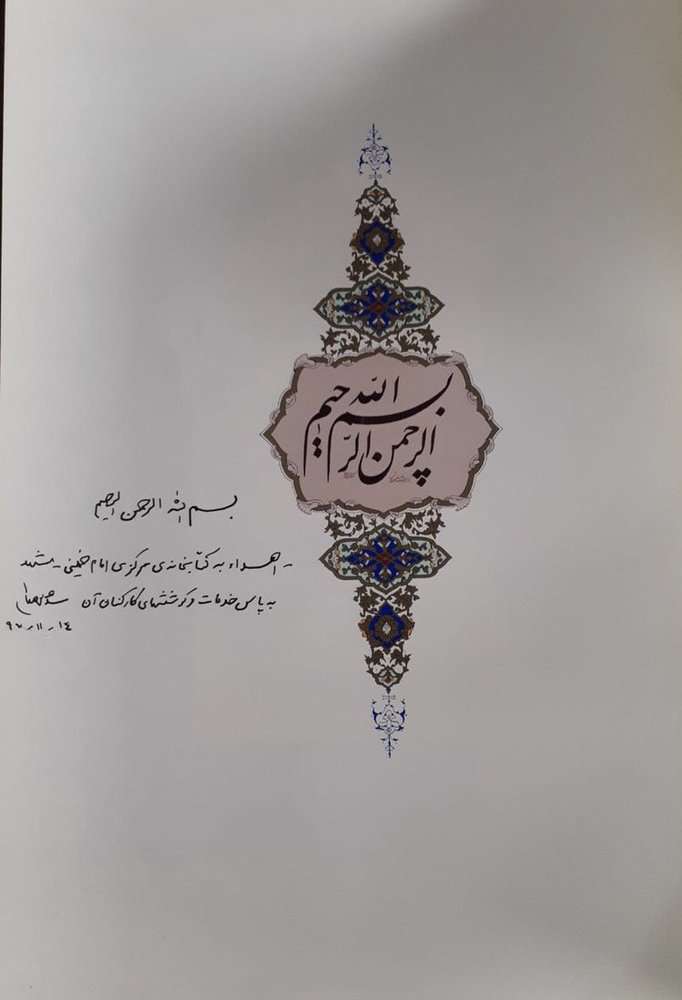 بسم الله
الرحمن الرحیم
بسم الله الرحمن الرحیم
- اهداء به کتابخانه‌ی مرکزی امام خمینی - مشهد
به پاس خدمات و کوششهای کارکنان آن
۱۴-۱۱-۹۷